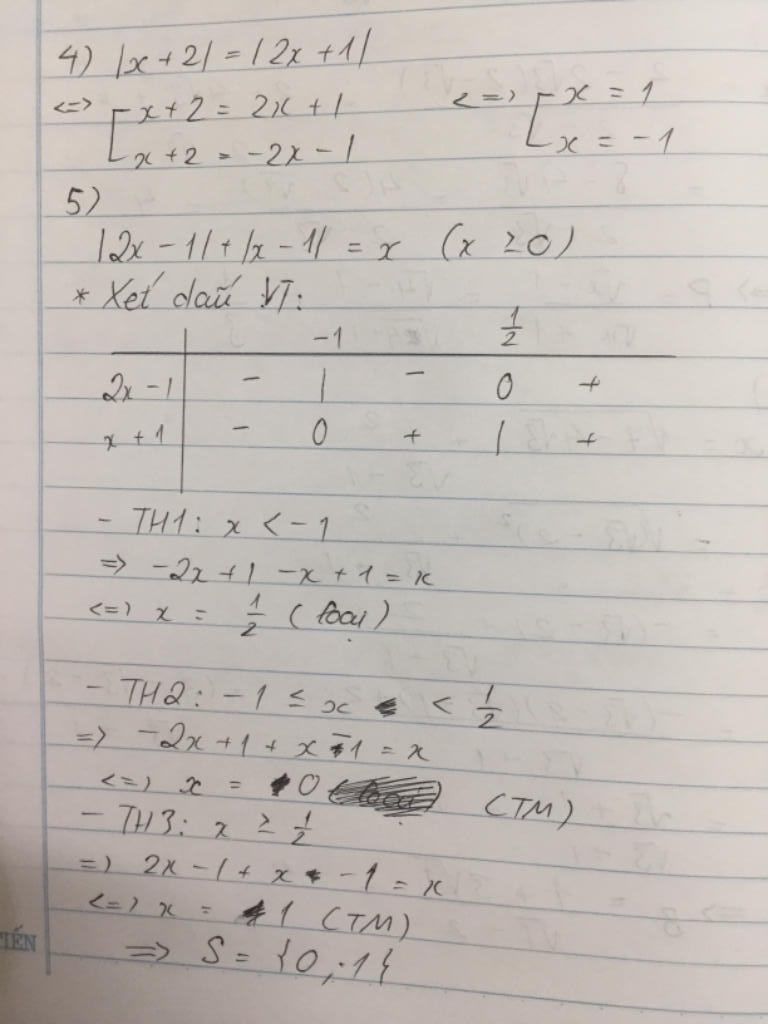 4) |x + 2| = |2x + 1|
<=> [ x + 2 = 2x + 1 <=> [ x = 1
x + 2 = -2x - 1 x = -1
5)
|2x - 1| + |x - 1| = x (x ≥ 0)
* Xét dấu VT:
-1 1/2
2x - 1 - | - 0 +
x + 1 - 0 + | +
- TH1: x < -1
=> -2x + 1 - x + 1 = x
<=> x = 1/2 (loại)
- TH2: -1 ≤ x < 1/2
=> -2x + 1 + x - 1 = x
<=> x = 0 (TM)
- TH3: x ≥ 1/2
=> 2x - 1 + x - 1 = x
<=> x = 1 (TM)
=> S = {0, 1}
TIẾN